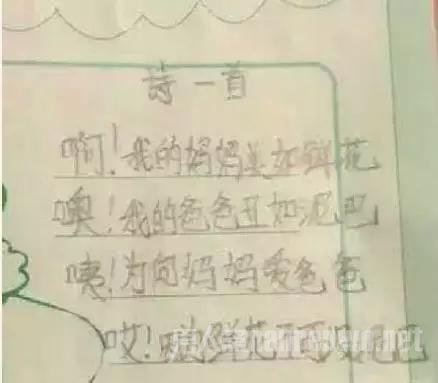 诗一首
啊!我的妈妈美如鲜花
噢!我的爸爸丑如泥巴
咦!为何妈妈爱爸爸
哎! 鲜花